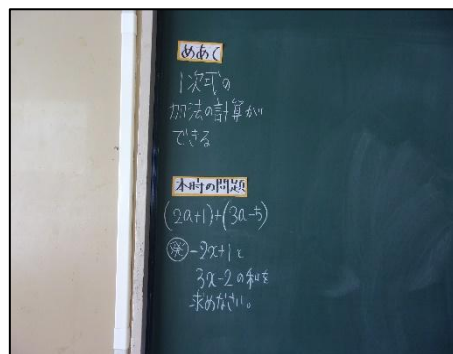 めあて
1次式の
加法の計算が
できる
本時の問題
(2a+1)+(3a-5)
発 -2x+1と
3x-2の和を
求めなさい。